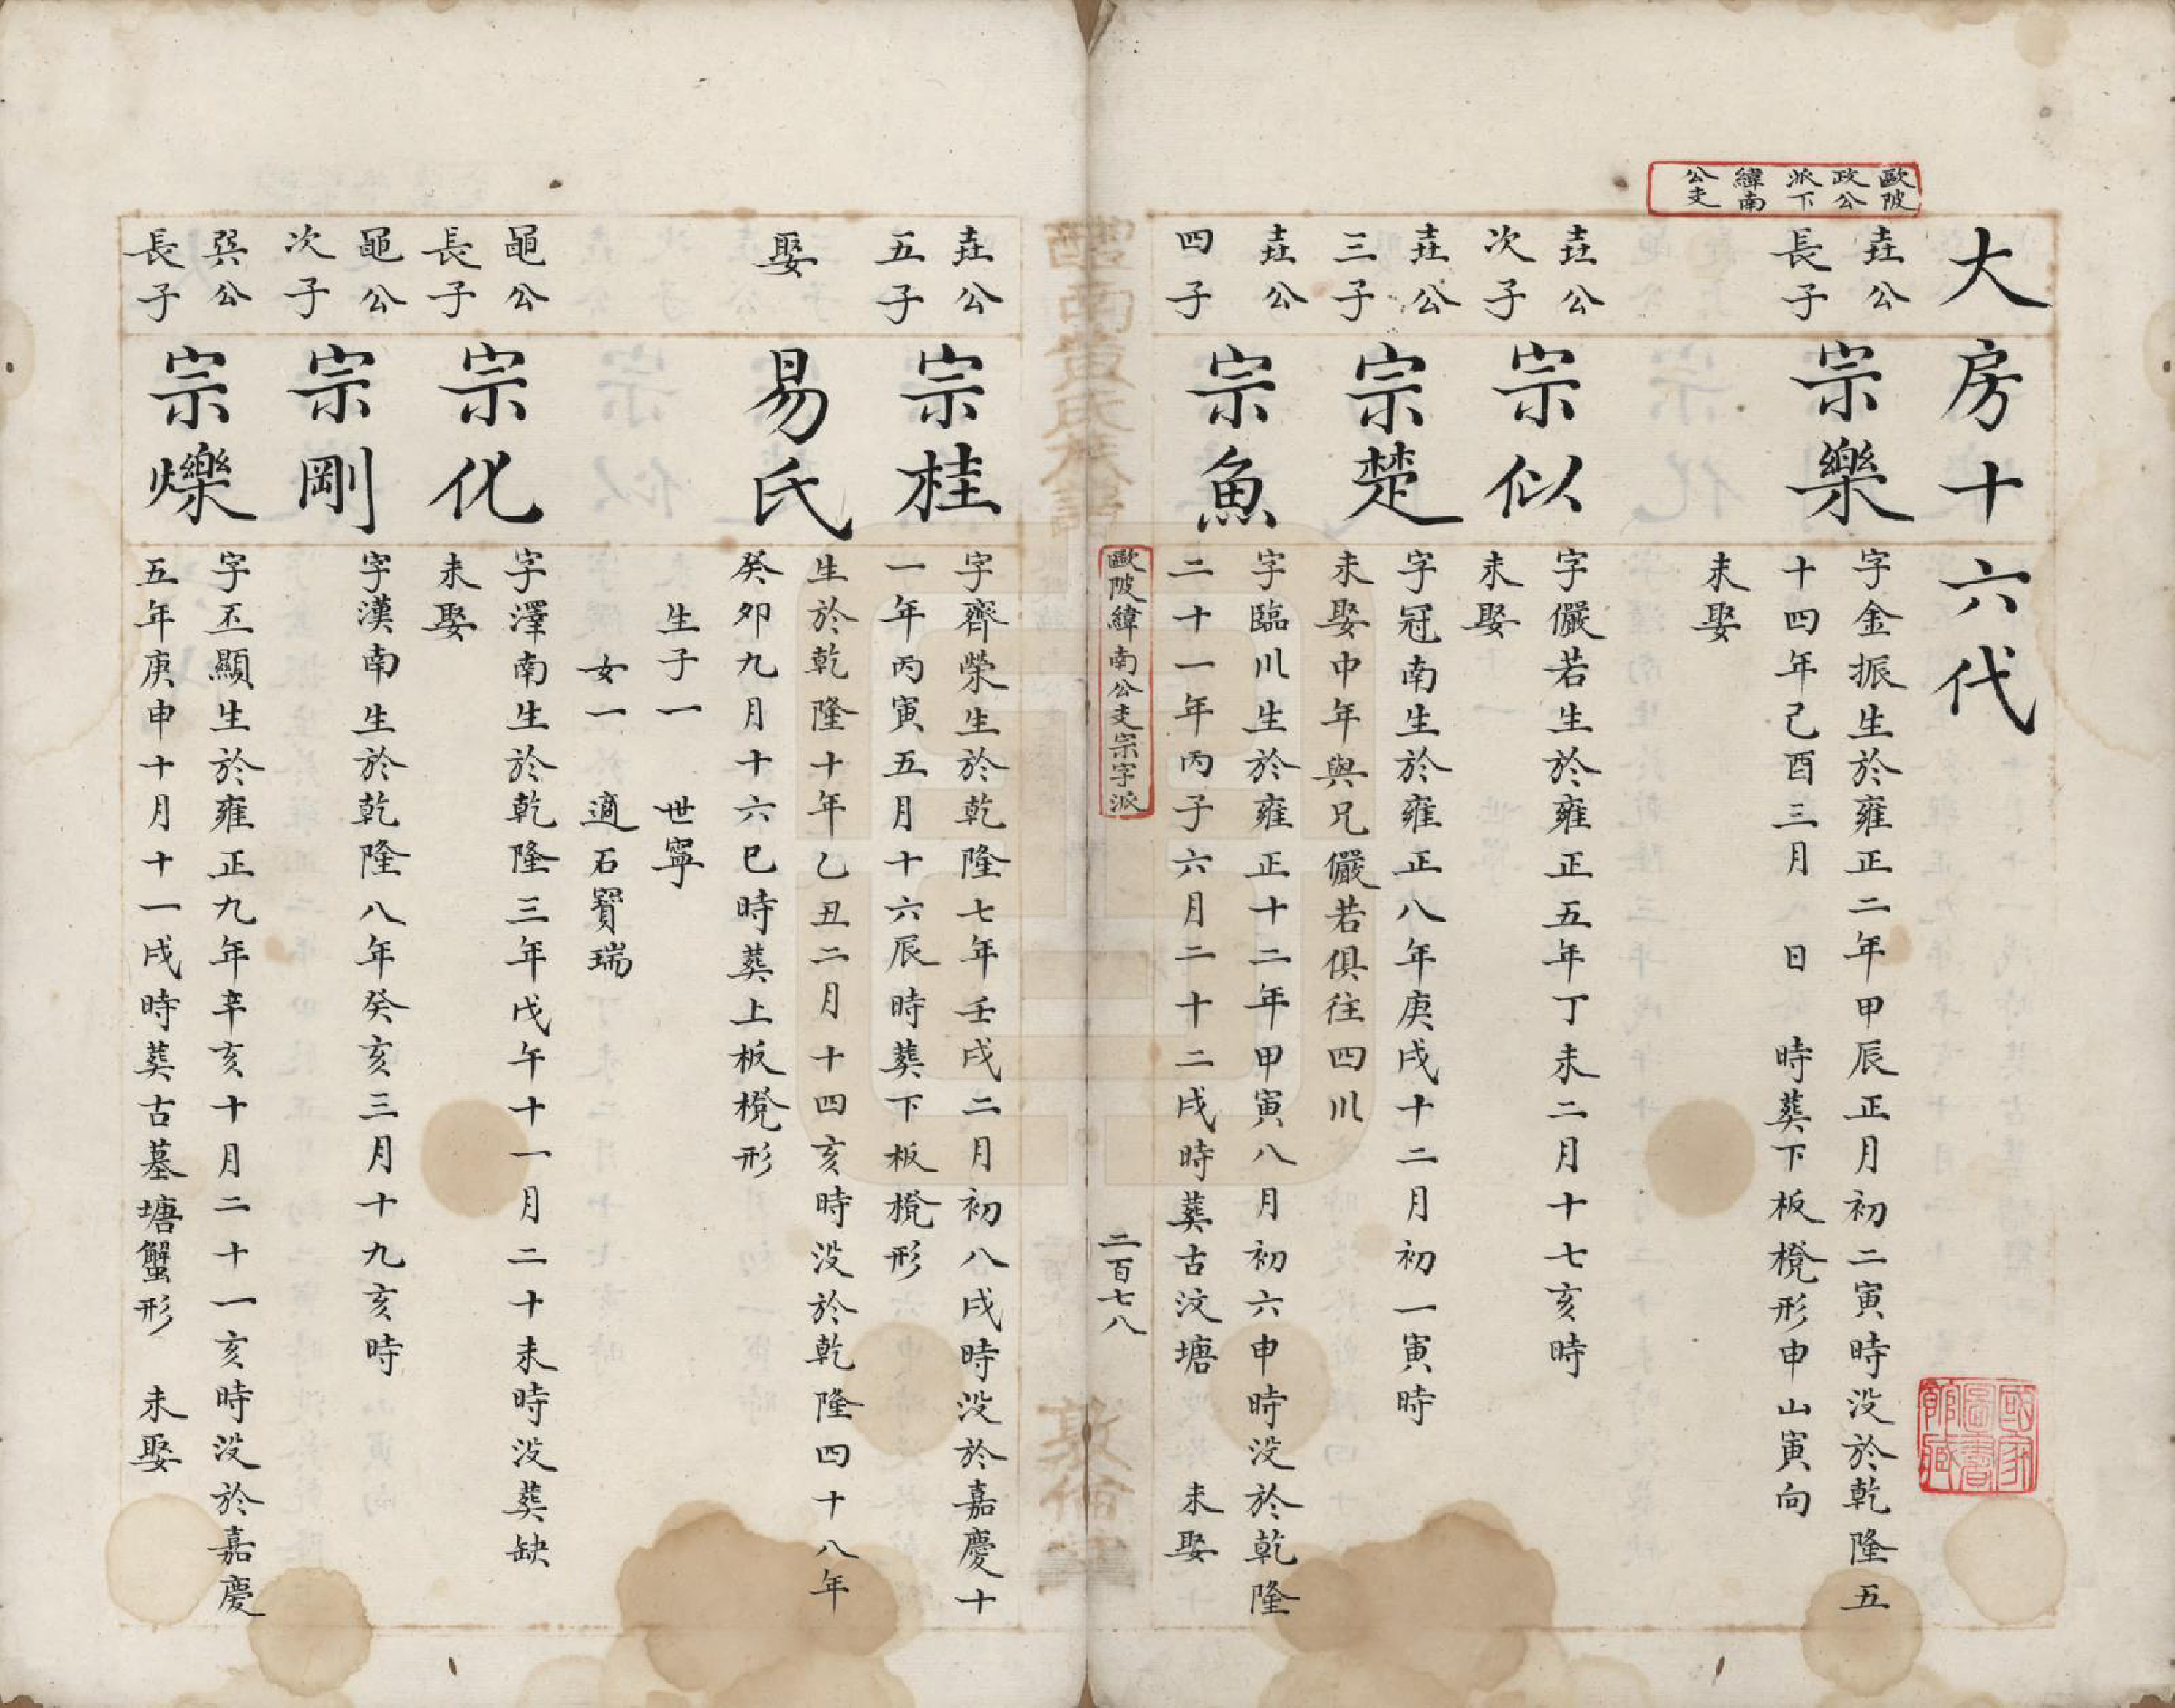 歐陂
政公
派下
緯南
公支
大房十六代
垚公
長子
宗樂
字金振生於雍正二年甲辰正月初二寅時没於乾隆五
十四年己酉三月 日 時葬下板櫈形申山寅向
未娶
垚公
次子
宗似
字儼若生於雍正五年丁未二月十七亥時
未娶
垚公
三子
宗楚
字冠南生於雍正八年庚戌十二月初一寅時
未娶中年與兄儼若俱往四川
垚公
四子
宗魚
字臨川生於雍正十二年甲寅八月初六申時没於乾隆
二十一年丙子六月二十二戌時葬古汶塘 未娶
醴南黃氏族譜
歐陂緯南公支宗字派
二百七八
敦倫堂
垚公
五子
宗桂
字齊榮生於乾隆七年壬戌二月初八戌時没於嘉慶十
一年丙寅五月十六辰時葬下板櫈形
娶
易氏
生於乾隆十年乙丑二月十四亥時没於乾隆四十八年
癸卯九月十六巳時葬上板櫈形
生子一 世寧
女一 適石寳瑞
黽公
長子
宗化
字澤南生於乾隆三年戊午十一月二十未時没葬缺
未娶
黽公
次子
宗剛
字漢南生於乾隆八年癸亥三月十九亥時
巺公
長子
宗爍
字丕顯生於雍正九年辛亥十月二十一亥時没於嘉慶
五年庚申十月十一戌時葬古墓塘蟹形 未娶
國家圖書館藏